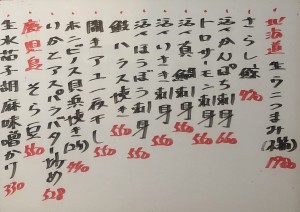 北海道 生うつまみ(2個) 1980
さらし鯨 770
活〆かんぱち刺身 660
トロサーモン刺身 550
活〆真鯛刺身 550
活〆いさき刺身 550
活〆ほうぼう刺身 550
鰕ハラス焼き 550
開きアユ一夜干し 550
ホンビノス貝焼き(2ヶ) 770
いかとアスパラバター炒め 528
鹿児島 そら豆 550
生水茄子胡麻味噌かけ 330